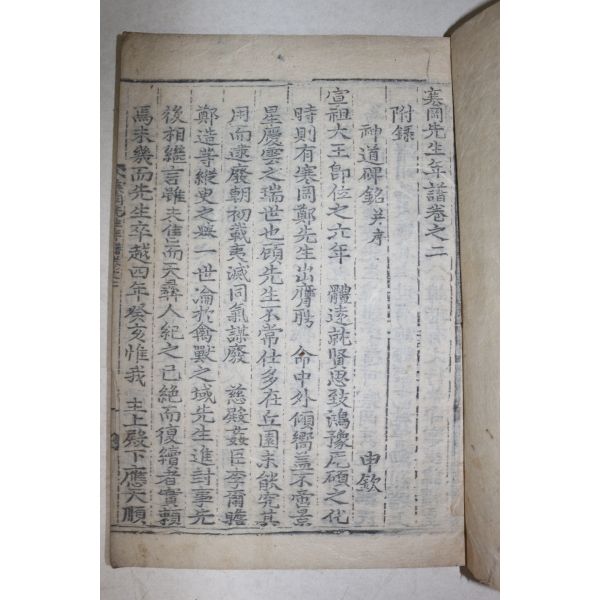 寒岡先生年譜卷之二
附錄
神道碑銘 并序 申欽
宣祖大王卽位之六年 體遠就賢思致鴻豫厖碩之代
時則有寒岡鄭先生出膺聘 命中外傾嚮蓋不啻景
星慶雲之瑞世也顧先生不常仕多在丘園未能究其
用而逮廢朝初載夷滅同氣謀廢 慈殿姦臣李爾瞻
鄭造等縱臾之擧一世淪於禽獸之域先生進封事先
後相繼言雖未售而天彝人紀之已絶而復續者實賴
焉未幾而先生卒越四年癸亥惟我 主上殿下應天順